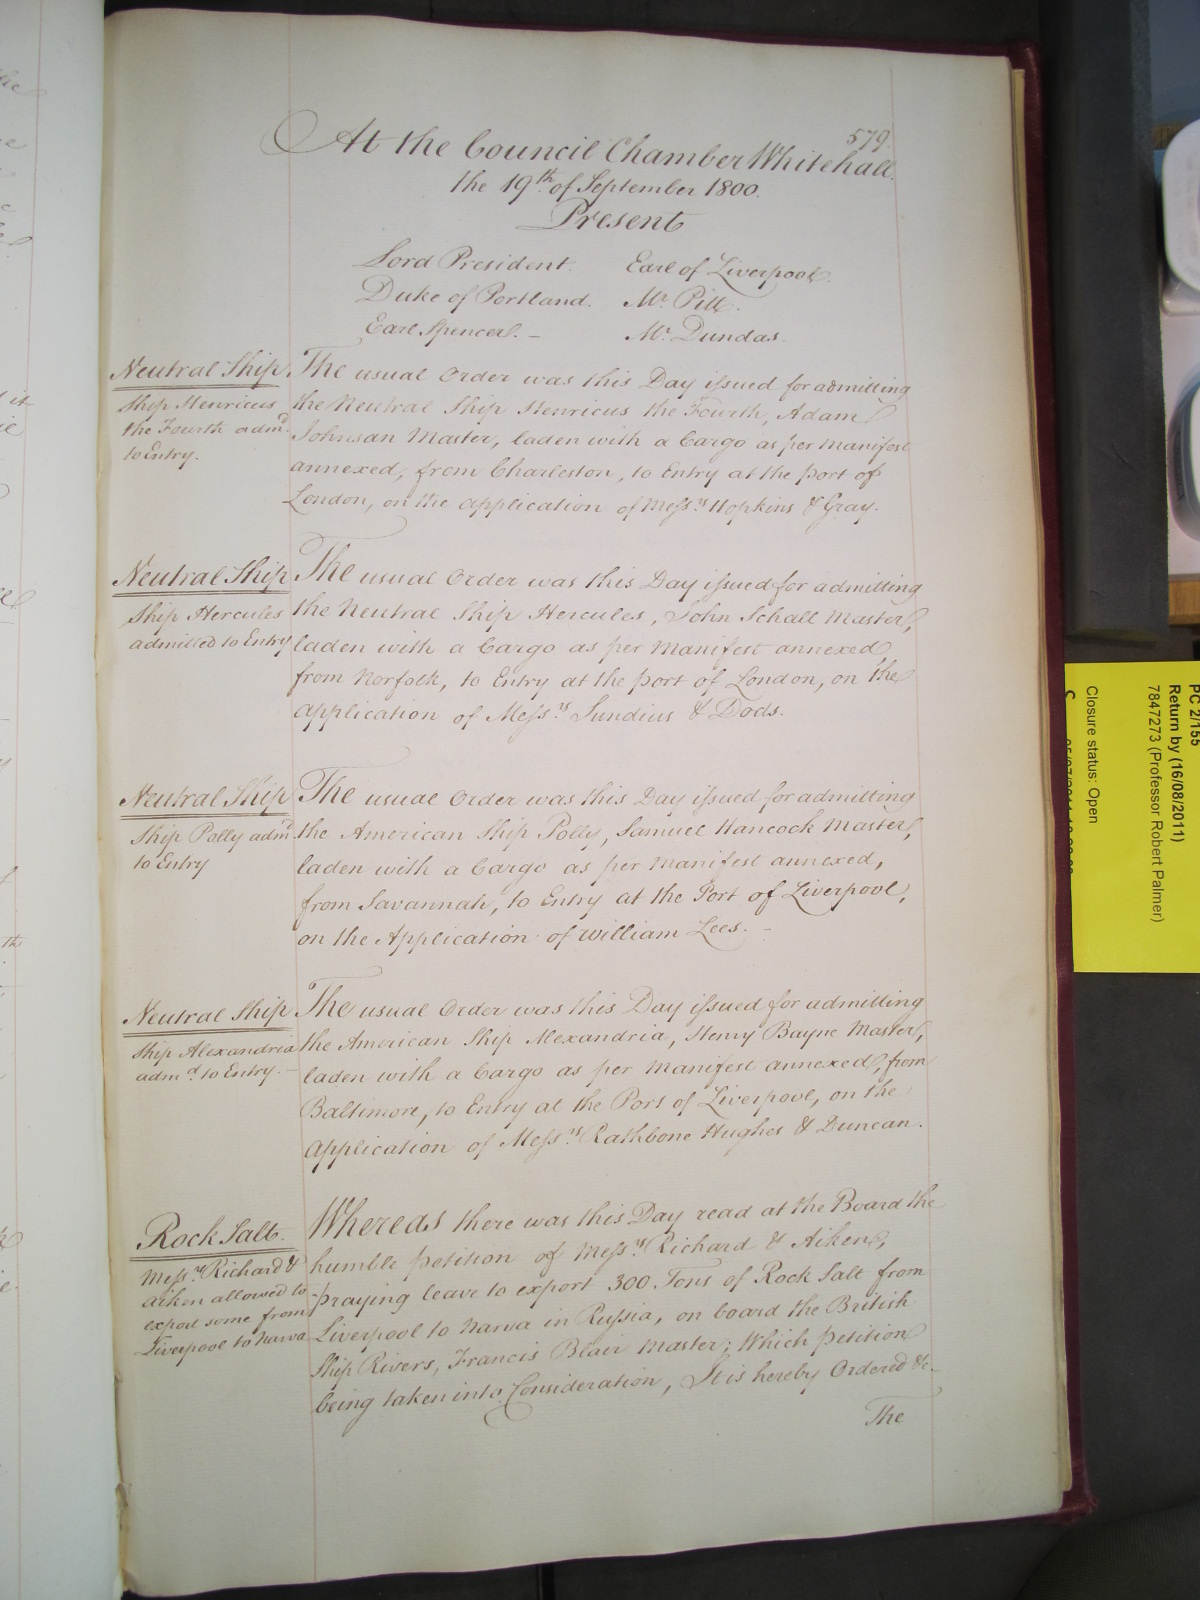 579.
At the Council Chamber Whitehall.
the 19th of September 1800.
Present
Lord President. Earl of Liverpool.
Duke of Portland. Mr. Pitt.
Earl Spencer. - Mr. Dundas.
Neutral Ship
Ship Henricus
the Fourth admd.
to Entry.
The usual Order was this Day issued for admitting
the Neutral Ship Henricus the Fourth, Adam
Johnsan Master, laden with a Cargo as per Manifest
annexed, from Charleston, to Entry at the Port of
London, on the application of Messrs. Hopkins & Gray.
Neutral Ship
Ship Hercules
admitted to Entry
The usual Order was this Day issued for admitting
the Neutral Ship Hercules, John Schall Master,
laden with a Cargo as per Manifest annexed
from Norfolk, to Entry at the port of London, on the
application of Messrs. Sundius & Dods.
Neutral Ship
Ship Polly admd.
to Entry
The usual Order was this Day issued for admitting
the American Ship Polly, Samuel Hancock Master,
laden with a Cargo as per Manifest annexed,
from Savannah, to Entry at the Port of Liverpool,
on the Application of William Lees. -
Neutral Ship
Ship Alexandria
admd. to Entry. -
The usual Order was this Day issued for admitting
the American Ship Alexandria, Henry Bayne Master,
laden with a Cargo as per Manifest annexed, from
Baltimore, to Entry at the Port of Liverpool, on the
Application of Messrs. Rathbone Hughes & Duncan.
Rock Salt.
Messrs. Richard &
Aiken allowed to
export some from
Liverpool to Narva
Whereas there was this Day read at the Board the
humble petition of Messrs. Richard & Aiken,
praying leave to export 300 Tons of Rock Salt from
Liverpool to Narva in Russia, on board the British
Ship Rivers, Francis Blair Master; Which petition
being taken into Consideration, It is hereby Ordered &c.
The
PC 2/155
Return by (16/08/2011)
7847273 (Professor Robert Palmer)
Closure status: Open